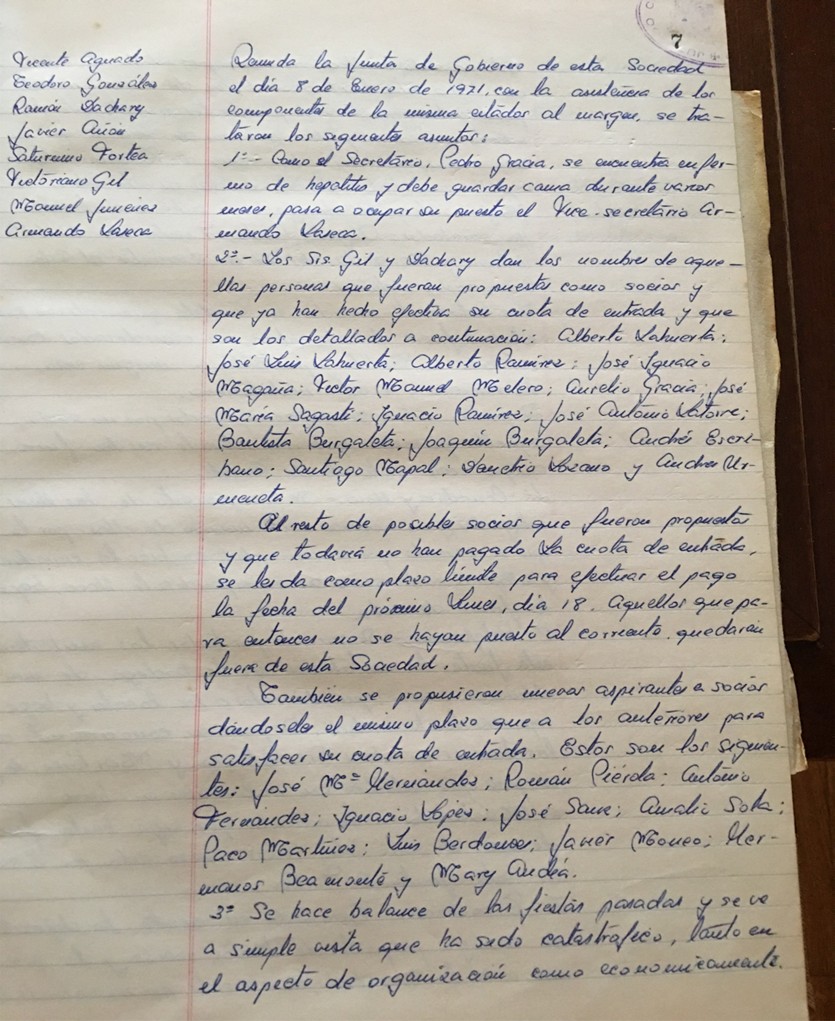 7
Vicente Aguado
Teodoro González
Román Dachary
Javier Añón
Saturnino Fortea
Victoriano Gil
Manuel Jiménez
Armando Laseca
Reunida la Junta de Gobierno de esta Sociedad
el día 8 de Enero de 1971, con la asistencia de los
componentes de la misma citados al margen, se tra-
taron los siguientes asuntos:
1º.- Como el Secretario, Pedro Gracia, se encuentra enfer-
mo de hepatitis y debe guardar cama durante varios
meses, pasa a ocupar su puesto el Vice-secretario Ar-
mando Laseca.
2º.- Los Srs. Gil y Dachary dan los nombres de aque-
llas personas que fueron propuestas como socios y
que ya han hecho efectiva su cuota de entrada y que
son los detallados a continuación: Alberto Lahuerta;
José Luis Lahuerta; Alberto Ramírez; José Ignacio
Magaña; Victor Manuel Melero; Aurelio Gracia; José
María Sagasti; Ignacio Ramírez; José Antonio Latorre;
Bautista Burgaleta; Joaquín Burgaleta; Andrés Escri-
bano; Santiago Mapal; Demetrio Lozano y Andrés Ur-
meneta.
Al resto de posibles socios que fueron propuestos
y que todavía no han pagado la cuota de entrada,
se les da como plazo límite para efectuar el pago
la fecha del próximo Lunes, día 18. Aquellos que pa-
ra entonces no se hayan puesto al corriente, quedarán
fuera de esta Sociedad.
También se propusieron nuevos aspirantes a socios
dándoseles el mismo plazo que a los anteriores para
satisfacer su cuota de entrada. Estos son los siguien-
tes: José Mª Hernández; Román Piérola; Antonio
Fernández; Ignacio López; José Sanz; Amalio Sola;
Paco Martínez; Luis Berdonces; Javier Moneo; Her-
manos Beamonte y Mary Andía.
3º Se hace balance de las fiestas pasadas y se ve
a simple vista que ha sido catastrófico, tanto en
el aspecto de organización como económicamente.